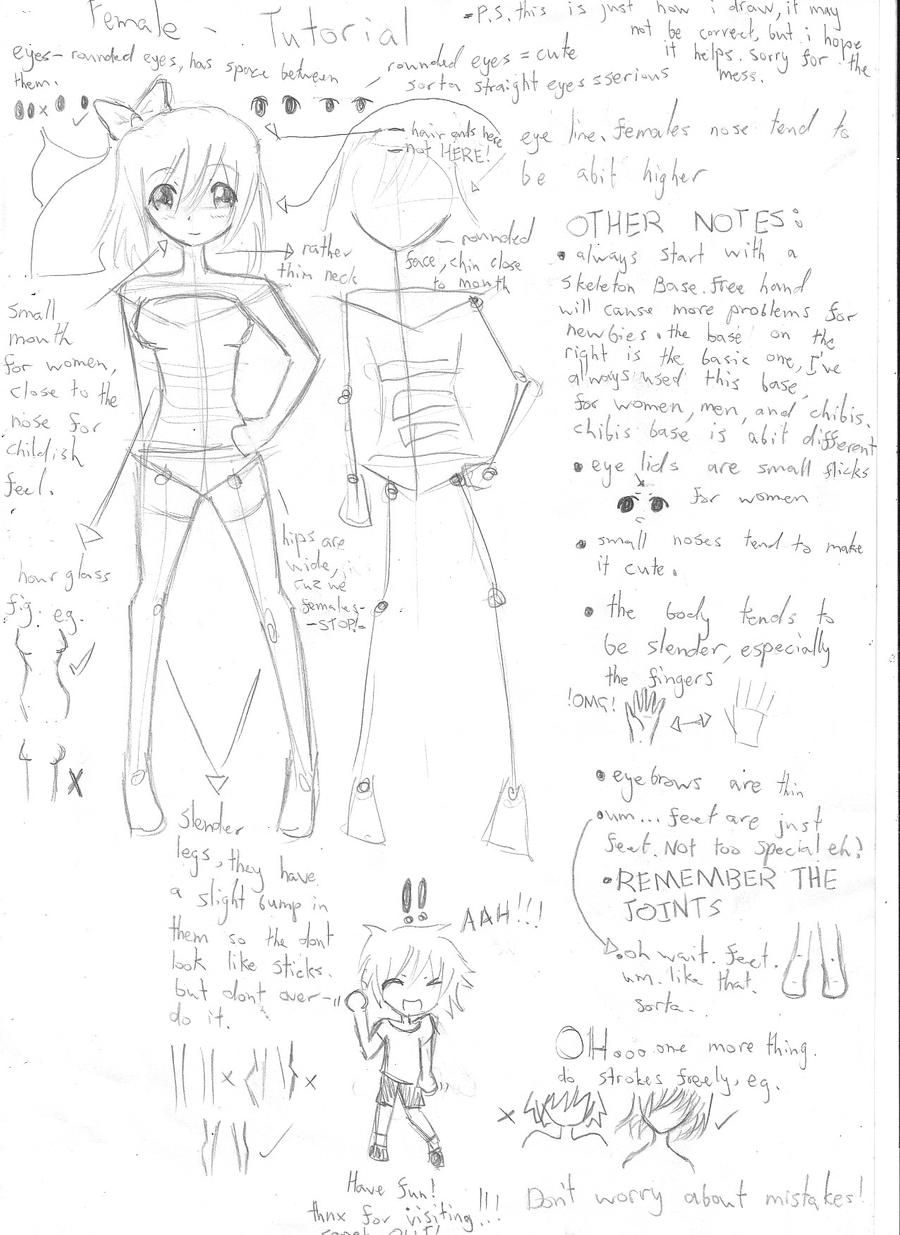 Female - Tutorial
*P.S. this is just how i draw, it may
not be correct, but i hope
it helps. sorry for the
mess.
eyes - rounded eyes, has space between
them.
rounded eyes = cute
sorta straight eyes = serious
hair ends here
- not HERE!
eye line. females nose tend to
be abit higher
rather
thin neck
rounded
face, chin close
to mouth
small
mouth
for women,
close to the
nose for
childish
feel.
hour glass
fig. eg.
hips are
wide,
cuz we
females-
-STOP!-
slender
legs, they have
a slight bump in
them so the dont
look like sticks.
but dont over-
do it.
OTHER NOTES:
• always start with a
skeleton Base. Free hand
will cause more problems for
newbies. the base on the
right is the basic one, I've
always used this base
for women, men, and chibis.
chibis base is abit different
• eye lids are small flicks
for women
• small noses tend to make
it cute.
• the body tends to
be slender, especially
the fingers
!OMG!
• eyebrows are thin
• um... feet are just
feet. Not too special eh?
• REMEMBER THE
JOINTS
• oh wait. feet.
um. like that.
sorta..
OHooo one more thing.
do strokes freely, eg.
!!
AAH!!!
Have fun!
thnx for visiting!!!
Don't worry about mistakes!